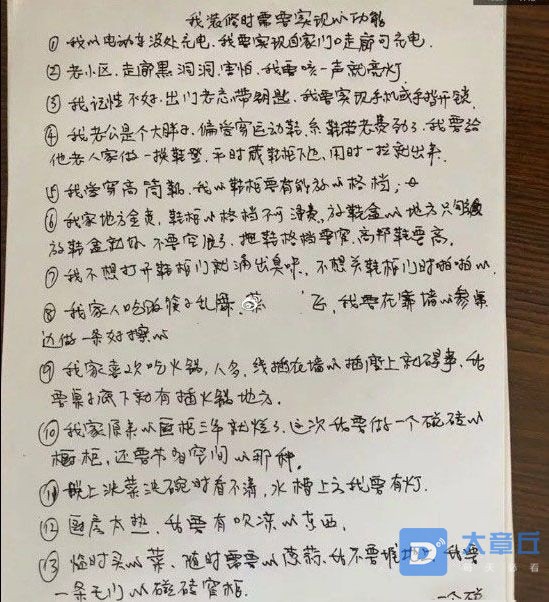 我装修时需要实现以功能
① 我以电动车没处充电.我要实现自家门口走廊可充电.
② 老小区.走廊黑洞洞.害怕.我要咳一声就亮灯
③ 我记性不好.出门老忘带钥匙.我要实现手机或手指开锁.
④ 我老公是个大胖子.偏爱穿运动鞋.系鞋带老费劲了.我要给
他老人家做一换鞋凳.平时藏鞋柜下边.用时一拉就出来.
⑤ 我爱穿高筒靴.我以鞋柜要有能放以格档;
⑥ 我家地方金贵.鞋柜以格档不可浪费.放鞋盒以地方只够
放鞋盒就好.不要空很多.拖鞋格档要窄.高帮鞋要高.
⑦ 我不想打开鞋柜门就涌出臭味.不想关鞋柜门时啪啪以.
⑧ 我家人吃饭筷子乱 飞,我要在靠墙以餐桌
边做一条好擦以
⑨ 我家喜欢吃火锅,人多,线插在墙以插座上就碍事.我
要桌子底下就有插火锅地方.
⑩ 我家原来以厨柜三年就烂了.这次我要做一个砖砖以
橱柜.还要节省空间以那种.
⑪ 晚上洗菜洗碗时看不清,水槽上方我要有灯.
⑫ 厨房太热.我要有吹凉以东西.
⑬ 临时买以菜.随时需要以葱蒜.我不要堆地上 我要
一条无门以磁砖窄柜. 一个
大章丘